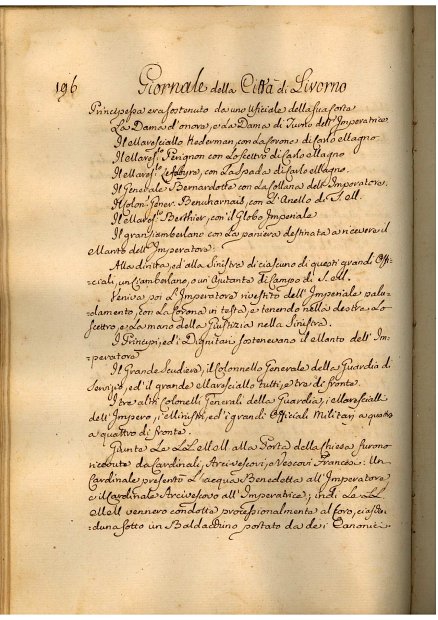 196 Giornale della Città di Livorno
Principessa era sostenuto da uno Ufficiale della sua Corte
La Dama d'onore, e la Dama di Turno dell'Imperatrice
Il Maresciallo Kederman, con la Corona di Carlo Magno.
Il Maresclo Perignon con lo Scettro di Carlo Magno
Il Maresclo Lefebvre, con la Spada di Carlo Magno.
Il Generale Bernardotte con la Collana dell'Imperatore.
Il Colon. Gener. Beauharnais, con l'Anello di S. M.
Il Maresclo Berthier, con il Globo Imperiale
Il gran Ciamberlano con la paniera destinata a ricevere il
Manto dell'Imperatore.
Alla diritta, ed alla Sinistra di ciascuno di questi grandi Offi-
ciali, un Ciamberlano, o un Ajutante di Campo di S. M.
Veniva poi l'Imperatore rivestito dell'Imperiale palu-
damento, con la Corona in testa, e tenendo nella destra lo
Scettro, e la mano della Giustizia nella Sinistra.
I Principi, ed i Dignitari sostenevano il Manto dell'Im-
peratore
Il Grande Scudiere, il Colonnello Generale della Guardia di
Servizio, ed il grande Maresciallo tutti, e tre di fronte.
I tre altri Colonelli Generali della Guardia, i Marescialli
dell'Impero, i Ministri, ed i grandi Officiali Militari a quattro
a quattro di fronte.
Giunte Le LL. MM. alla Porta della Chiesa furono
ricevute da Cardinali, Arcivescovi, e Vescovi Francesi: Un
Cardinale presentò l'acqua Benedetta all'Imperatore
e il Cardinale Arcivescovo all'Imperatrice; indi Le LL.
MM. vennero condotte processionalmente al Coro, ciasche-
duna sotto un Baldacchino portato da dei Canonici.